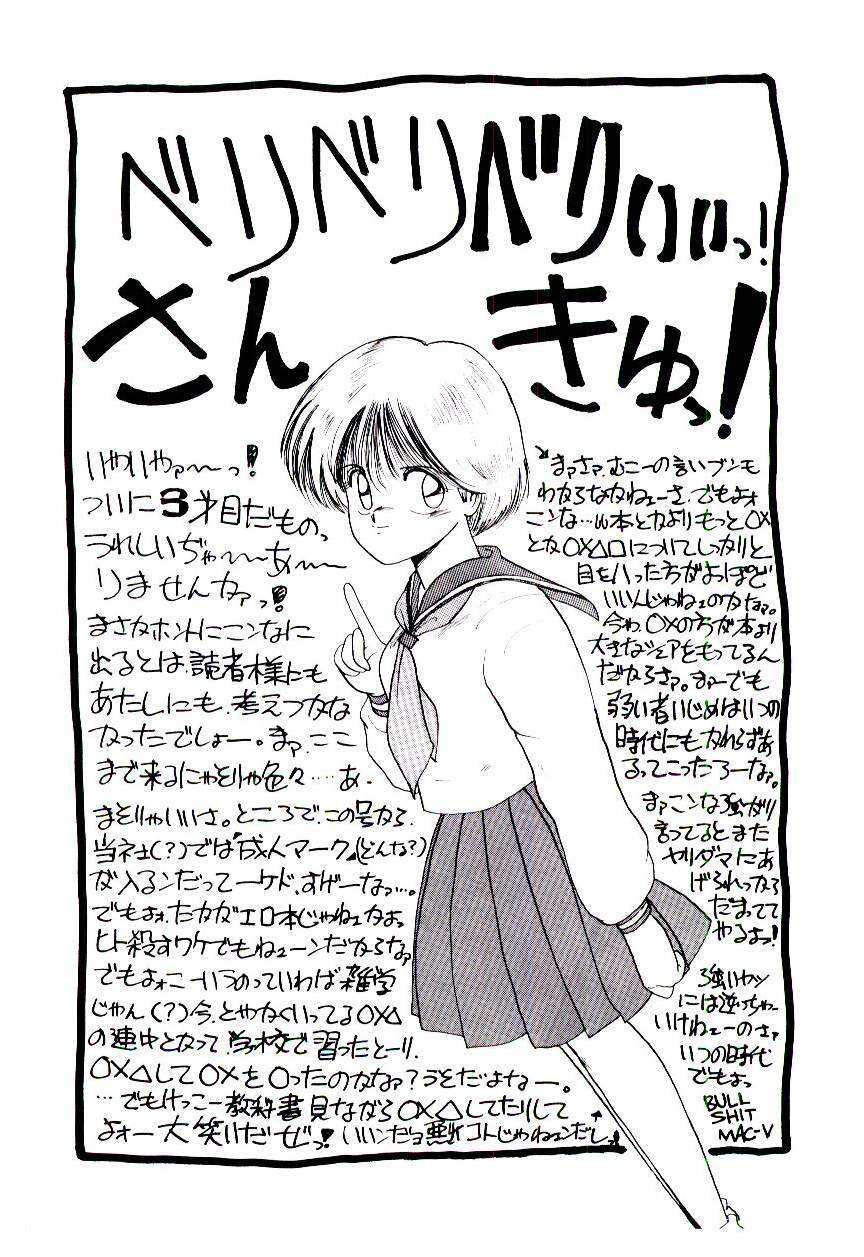 ベリベリベリいいっ!
さんきゅっ!
いやいやァ〜〜っ!
ついに3才目だものっ
うれしいぢゃ〜〜〜あ〜〜
りませんかァっ!
まさかホントにこンなに
出るとは、読者様にも
あたしにも、考えつかな
かったでしょー。まァ、ここ
まで来るにゃそりゃ色々……あ、
まそりゃいいさ。ところで、この号から、
当社(?)では「成人マーク」(どんな?)
が入るンだってーケド、すげーなァ…。
でもよォ、たかがエロ本じゃねェかよっ
ヒト殺すワケでもねェーンだからなァ
でもよォこーいうのっていわば雑学
じゃん(?)今、とやかくいってる○×△
の連中となって、学校で習ったとーり、
○×△して○×を○ったのかなァ?うそだよなー。
…でもけっこー教科書見ながら○×△してたりして
よォー大笑いだぜっ!いいンだョ悪いコトじゃねェンだしょ
まァさァ、むこーの言いブンも
わからなかねェーさ、でもよォ
こンな…い本とかよりもっと○×
とか○×△□についてしっかりと
目をハった方がよっぽど
いいんじゃねェのかなァ。
今わ、○×の方が本より
大きなシェアをもってるん
だからさァ。まァーでも
弱い者いじめはいつの
時代にもかわらずあ
るってこったろーなァ。
まァこンな強がり
言ってるとまた
ヤリダマにあ
げられっから
だまってて
やるよっ!
強いヤツ
には逆っちゃー
いけねェーのさァ
いつの時代
でもよっ
BULL
SHIT
MAC-V